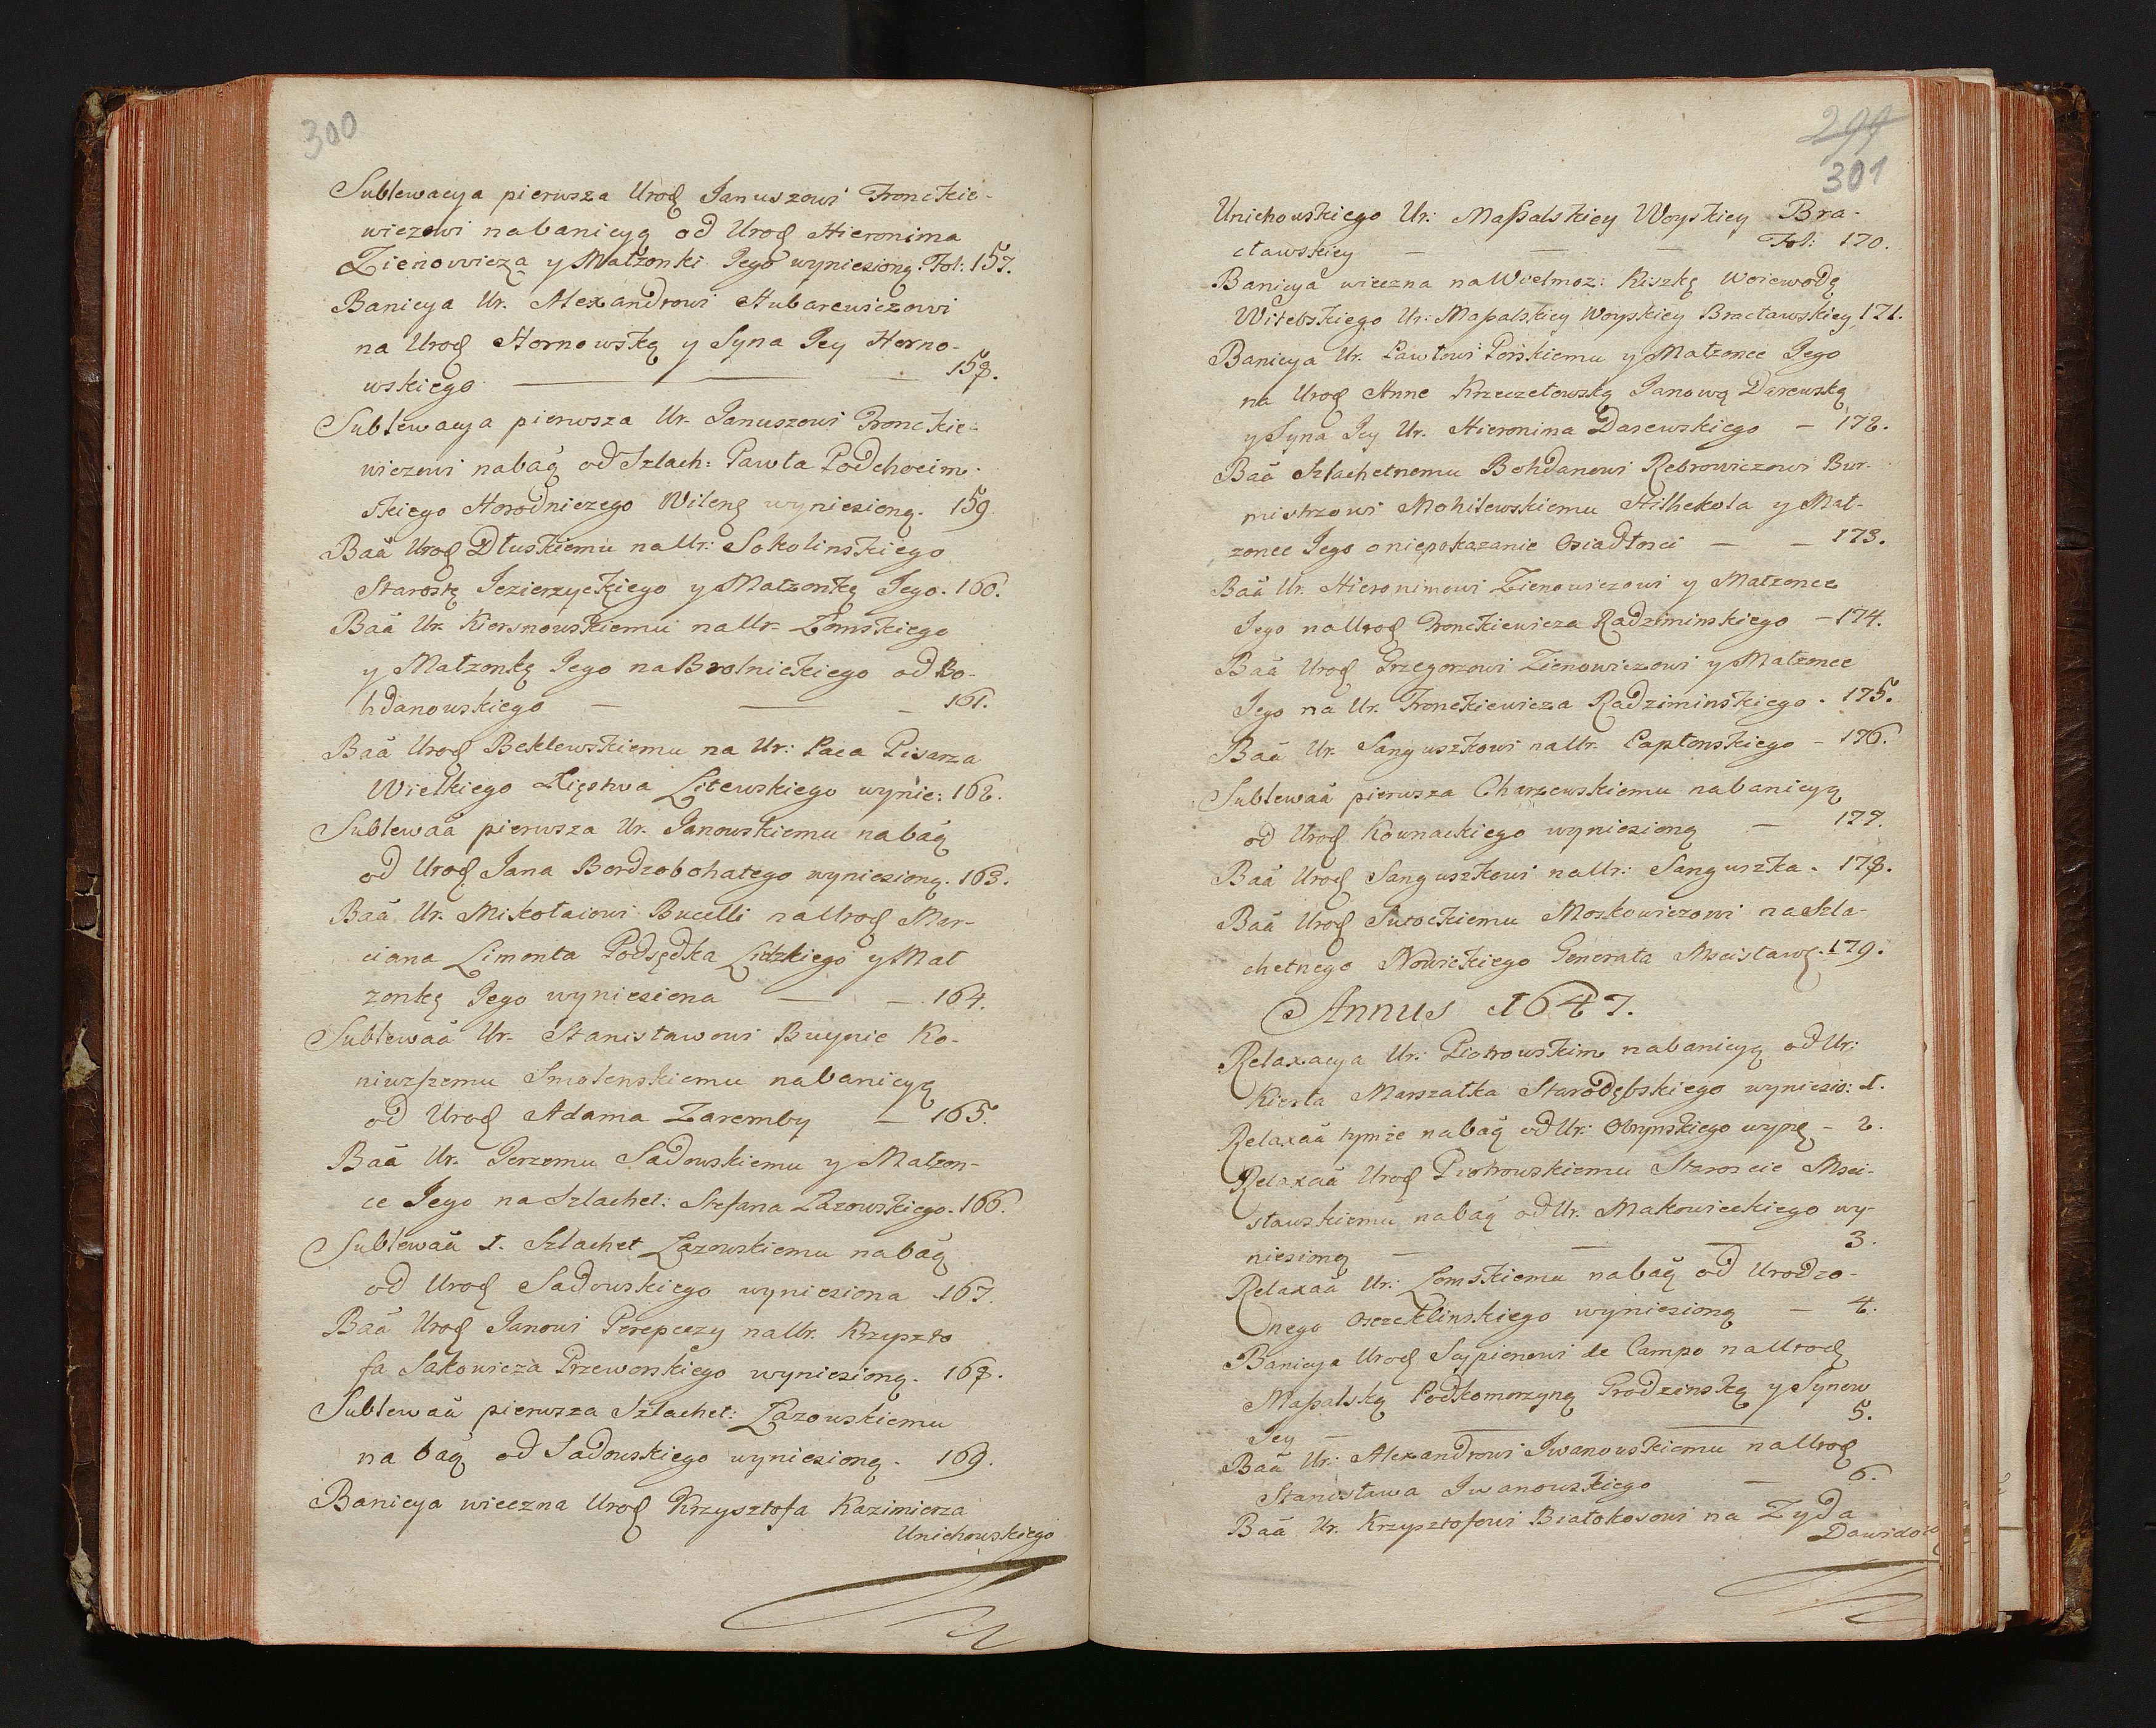 300
Sublewacya pierwsza Urod Januszowi Fronckie-
wiczowi nabanicyą od Urod Hieronima
Zienowicza y Małżonki Jego wyniesioną. Fol: 157.
Banicya Ur. Alexandrowi Hubarewiczowi
na Urod Hornowską y Syna Jey Horno-
wskiego — — — 158.
Sublewacya pierwsza Ur. Januszowi Fronckie-
wiczowi nabaą od Szlach: Pawła Podchocim-
skiego Horodniczego Wileng wyniesioną. 159
Baa Urod Dłuskiemu na Ur: Sokolinskiego
Starostę Jezierzyckiego y Małzonkę Jego. 160.
Baa Ur. Kiersnowskiemu na Ur. Zomskiego
y Małzonkę Jego na Brolnickiego od Bo-
hdanowskiego — — — 161.
Baa Urod Beklewskiemu na Ur: Paca Pisarza
Wielkiego Xięstwa Litewskiego wynie: 162.
Sublewaa pierwsza Ur. Janowskiemu nabaą
od Urod Jana Bordzobohatego wyniesioną. 163.
Baa Ur. Mikołaiowi Bucelli na Urod Mar-
ciana Limonta Podsędka Lidzkiego y Mał
zonkę Jego wyniesiona — — 164.
Sublewaa Ur. Stanisławowi Buynie Ko-
niuszemu Smolenskiemu nabanicyą
od Urod Adama Zaremby — 165.
Baa Ur. Jerzemu Sadowskiemu y Małzon-
ce Jego na Szlachet: Stefana Łazowskiego. 166.
Sublewaa 1. Szlachet Łazowskiemu nabaą
od Urod Sadowskiego wyniesiona 167.
Baa Urod Janowi Perepeczy na Ur. Krzyszto
fa Sakowicza Przeworskiego wyniesioną. 168.
Sublewaa pierwsza Szlachet: Łazowskiemu
na baą od Sadowskiego wyniesioną. 169.
Banicya wieczna Urod Krzysztofa Kazimierza
Unichowskiego
299
301
Unichowskiego Ur: Massalskiey Woyskiey Bra-
cławskiey — — — Fol: 170.
Banicya wieczna na Wielmoz: Kiszkę Woiewodę
Witebskiego Ur: Massalskiey Woyskiey Bracławskiey 171.
Banicya Ur. Pawłowi Porskiemu y Małzonce Jego
na Urod Anne Krzeczetowską Janową Darewską
y Syna Jey Ur. Hieronima Darewskiego — 172.
Baa Szlachetnemu Bohdanowi Rebrowiczowi Bur-
mistrzowi Mohilewskiemu Hilhekola y Mał-
zonce Jego oniepokazanie Osiadłosci — — 173.
Baa Ur. Hieronimowi Zienowiczowi y Małzonce
Jego na Urod Fronckiewicza Radziminskiego — 174.
Baa Urod Grzegorzowi Zienowiczowi y Małzonce
Jego na Ur. Fronckiewicza Radziminskiego . 175.
Baa Ur. Sanguszkowi na Ur. Captonskiego — 176.
Sublewaa pierwsza Charzewskiemu nabanicyą
od Urod Kownackiego wyniesioną — 177.
Baa Urod Sanguszkowi na Ur: Sanguszka. 178.
Baa Urod Surockiemu Moskowiczowi na Szla-
chetnego Nowickiego Generała Mscisławs. 179.
Annus 1647.
Relaxacya Ur: Piotrowskim nabanicyą od Ur:
Kierla Marszałka Starodębskiego wyniesio: 1.
Relaxaa tymże nabaą od Ur: Obrynskiego wynę — 2.
Relaxaa Urod Piotrowskiemu Staroscie Msci-
sławskiemu nabaą od Ur. Makowieckiego wy-
niesioną — — — 3.
Relaxaa Ur: Łomskiemu nabaą od Urodzo-
nego Oszczeklinskiego wyniesioną — 4.
Banicya Urod Scypionowi de Campo na Urod
Massalską Podkomorzyną Grodzinską y Synow
Jey — — 5.
Baa Ur: Alexandrowi Iwanowskiemu na Urod
Stanisława Iwanowskiego — 6.
Baa Ur. Krzysztofowi Białokosowi na Zyda